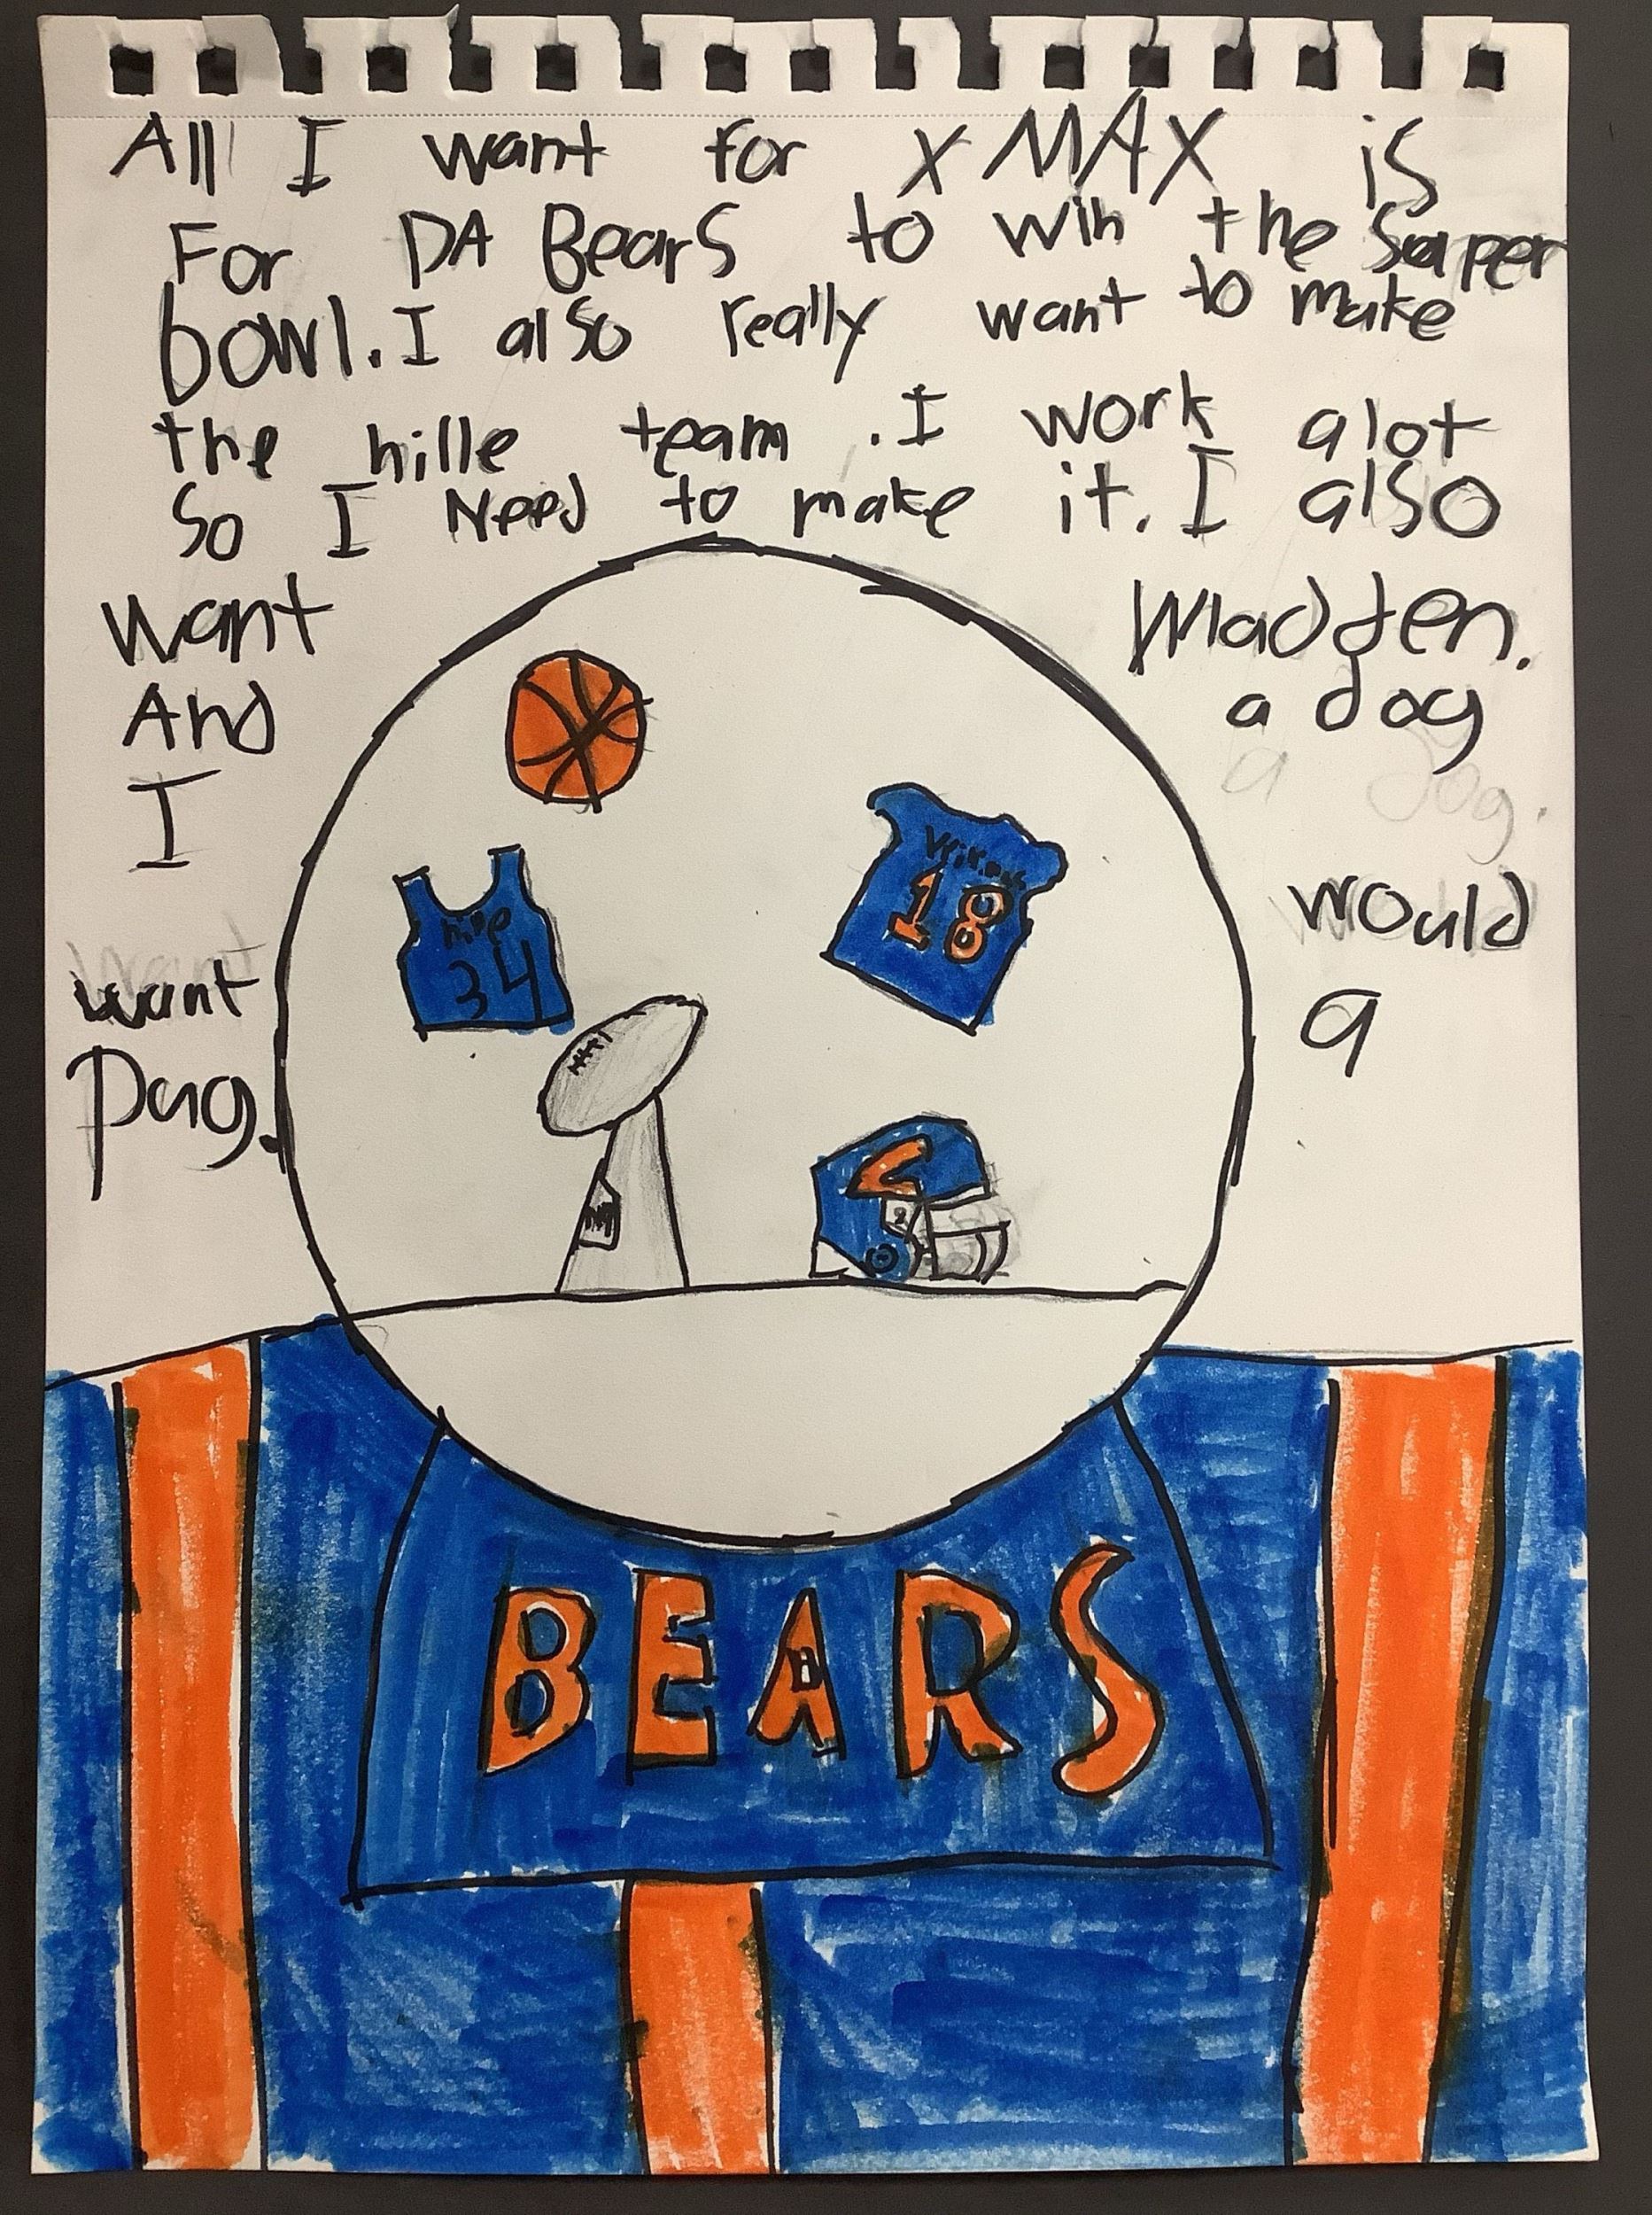 All I want for XMAX is
For DA Bears to win the Super
bowl. I also really want to make
the hille team. I work alot
So I Need to make it. I also
want Madden.
And a dog
a dog.
I would
want a
pug.
18
hille
34
2
BEARS